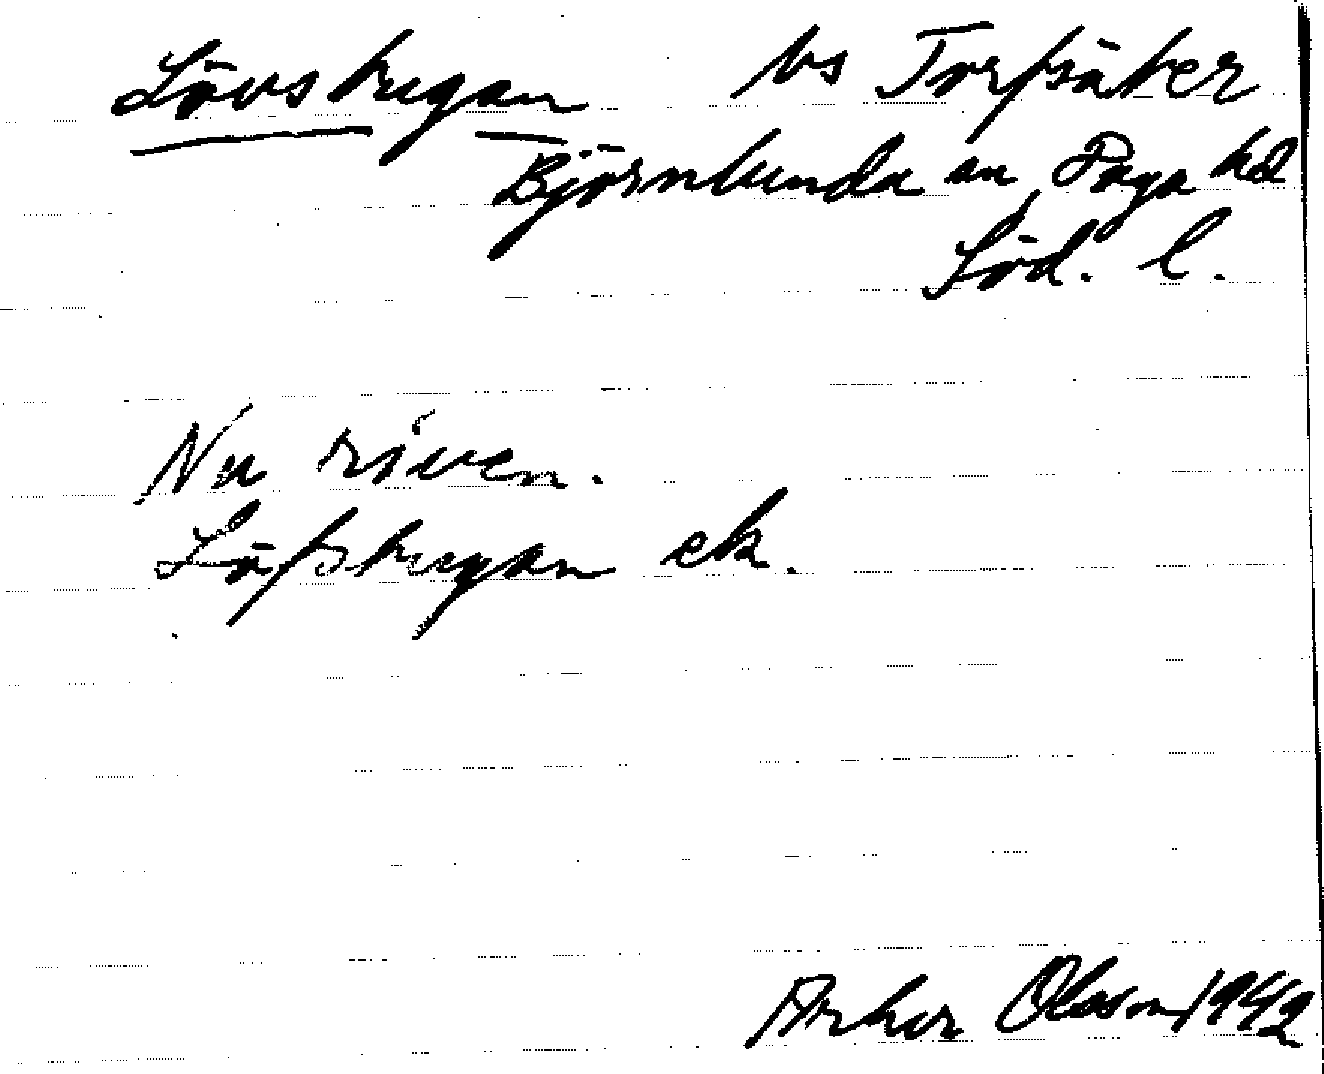 Lövstugan bs Torpsäter
Björnlunda sn, Daga hd
Söd. l.
Nu riven.
Löfstugan ek.
Olsson 1942